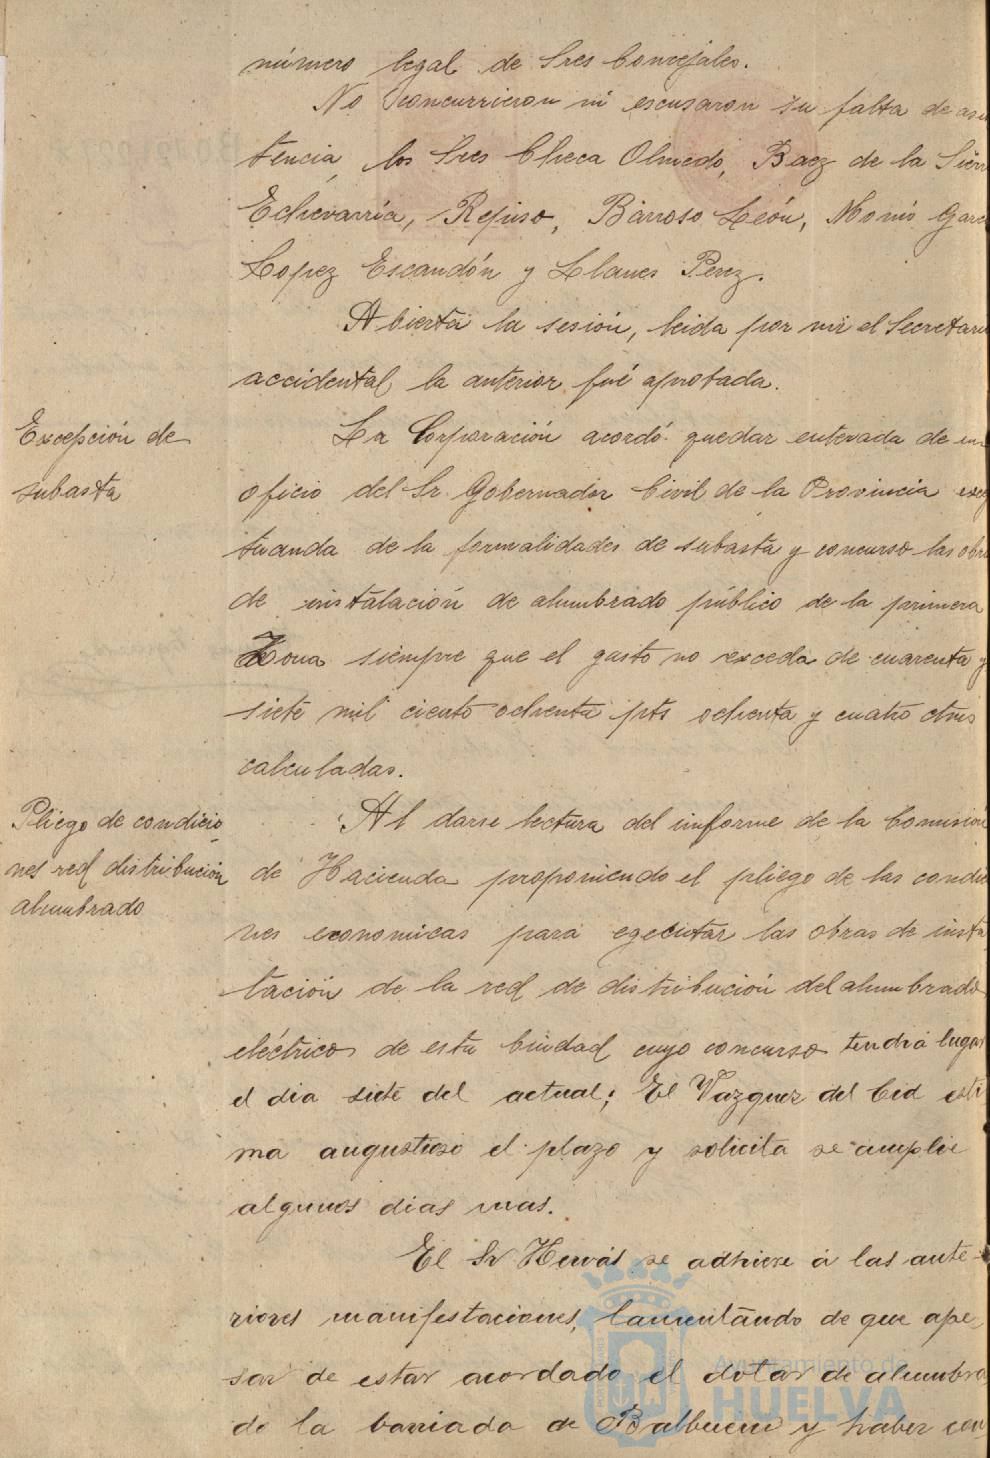 número legal de Sres Concejales.
No concurrieron ni escusaron su falta de asis
tencia, los Sres Checa Olmedo, Baez de la Sierra
Echevarria, Repiso, Barroso León, Garc
Lopez Escandón y Llanes Perez.
Abierta la sesión, leida por mi el Secretario
accidental, la anterior fué aprobada.
Excepción de
subasta
La Corporación acordó quedar enterada de un
oficio del Sr. Gobernador Civil de la Provincia excep
tuanda de la formalidades de subasta y concurso las obras
de instalación de alumbrado público de la primera
Zona siempre que el gasto no exceda de cuarenta y
siete mil ciento ochenta pts ochenta y cuatro ctms
calculadas.
Pliego de condicio
nes red distribución
alumbrado
Al darse lectura del informe de la Comisión
de Hacienda proponiendo el pliego de las condicio
nes economicas para egecutar las obras de insta
lación de la red de distribución del alumbrado
eléctrico de esta Ciudad cuyo concurso tendrá lugar
el dia siete del actual; El Vazquez del Cid esti
ma angustioso el plazo y solicita se amplie
algunos dias mas.
El Sr Hervás se adhiere á las ante-
riores manifestaciones, lamentando de que ape-
sar de estar acordado el dotar de alumbra
do la barriada de Balbuena y haber con
Ayuntamiento de
HUELVA